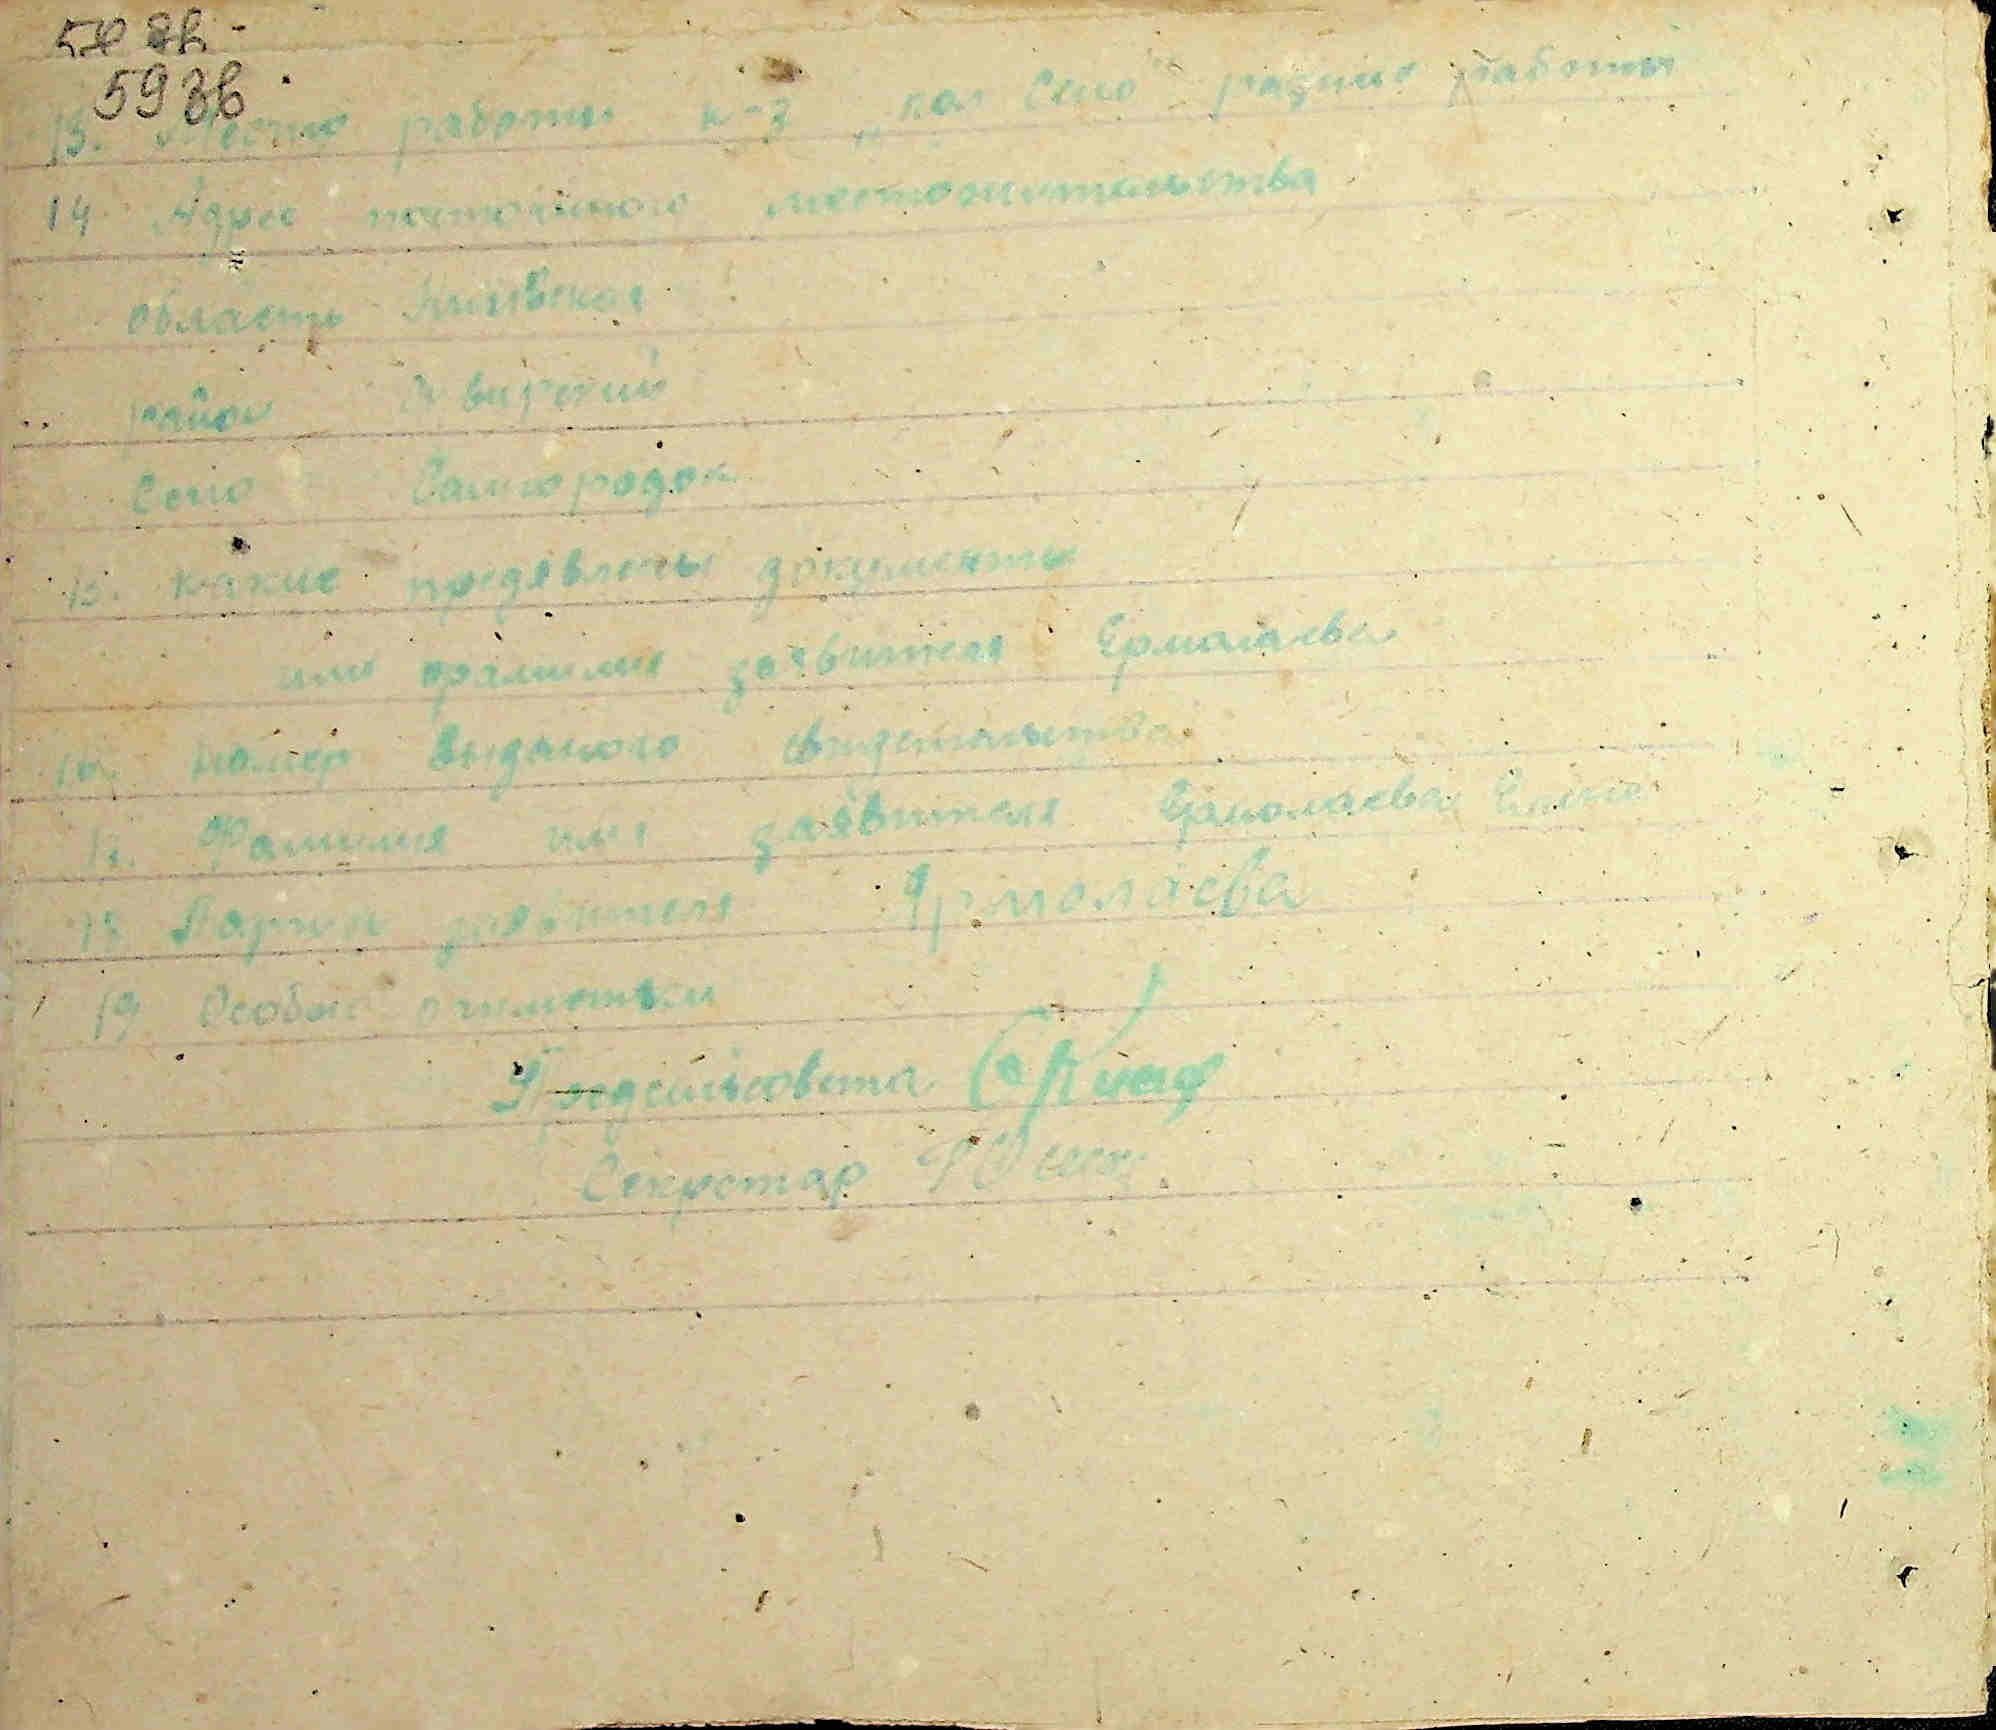 59 зв
13. Место работы к-з „кол Село" разные работы
14 Адрес постоянного местожительства
область Киевская
район Сквирский
Село Самгородок
15. какие предявлены документы
или фамилия заявителя Ермолаева
16. номер выданого свидетельства
17. Фамилия имя заявителя Ермолаева
18 заявителя Ярмолаева
19 Особые отметки
Предсельсовета
Секретар